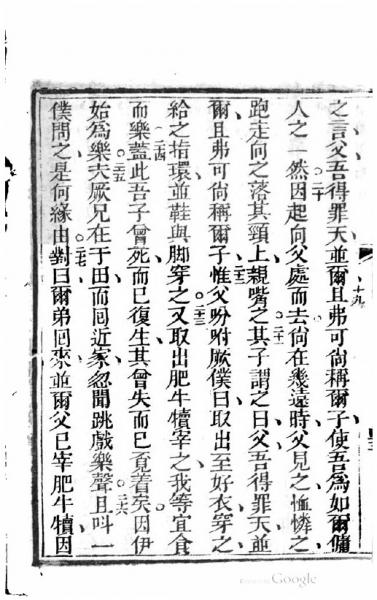 十九
之言父吾得罪天並爾且弗可尙稱爾子使吾爲如爾傭
二十
人之一然因起向父處而去尙在幾遠時父見之恤憐之
二十一
跑走向之落其頸上親嘴之其子謂之曰父吾得罪天並
二十二
爾且弗可尙稱爾子惟父吩咐厥僕曰取出至好衣穿之
二十三
給之指環並鞋與脚穿之又取出肥牛犢宰之我等宜食
二十四
而樂蓋此吾子曾死而已復生其曾失而已覔着矣因伊
二十五
二十六
始爲樂夫厥兄在于田而回近家忽聞跳戲樂聲且叫一
二十七
僕問之是何緣由對曰爾弟回來並爾父已宰肥牛犢因
Google